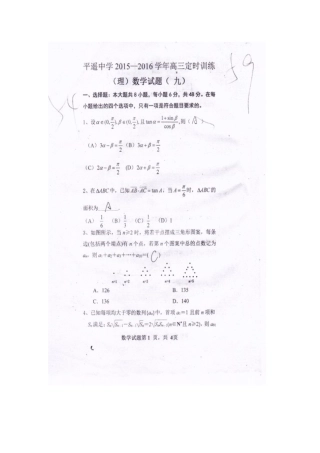 平遥中学2015—2016学年高三定时训练
(理)数学试题(九)
一、选择题:本大题共8小题,每小题6分,共48分。在每
小题给出的四个选项中,只有一项是符合题目要求的。
1、设α∈(0,π/2),β∈(0,π/2),且tanα=(1+sinβ)/cosβ,则(
(A)3α−β=π/2 (B)3α+β=π/2
(C)2α−β=π/2 (D)2α+β=π/2
2、在ΔABC中,已知AB·AC=tanA,当A=π/6时,ΔABC的
面积为 A
(A)1/6 (B) (C)1/2 (D)1
3、如图所示,当n≥2时,将若干点摆成三角形图案,每条
边(包括两个端点)有n个点,若第n个图案中总的点数记为
aₙ,则a₁+a₂+a₃+⋯+a₁₀=( C )
n=1 n=2 n=3 n=4 n=5
A.126 B.135
C.136 D.140
4、已知每项均大于零的数列{aₙ}中,首项a₁=1且前n项和
Sₙ满足:Sₙ√Sₙ₋₁−Sₙ₋₁√Sₙ=2√SₙSₙ₋₁(n∈N*且n≥2),则a₈₁
数学试题第1页,共4页